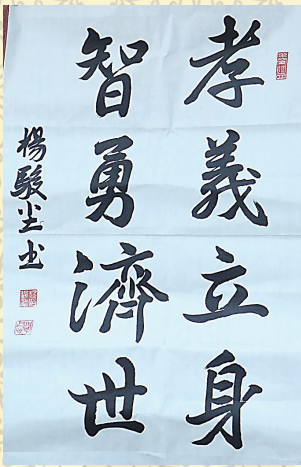 孝義立身
智勇濟世
楊駿尘书